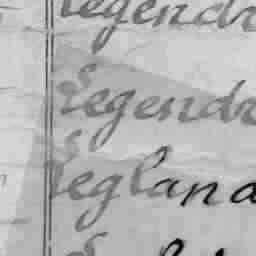 Legendr
Legendr
Legland